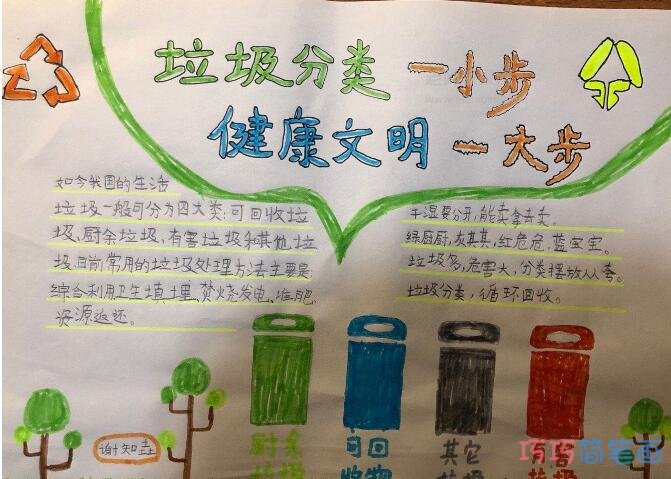 垃圾分类一小步
健康文明一大步
如今我国的生活
垃圾一般可分为四大类:可回收垃
圾、厨余垃圾,有害垃圾和其他垃
圾.目前常用的垃圾处理方法主要是
综合利用卫生填埋、焚烧发电、堆肥、
资源返还。
干湿要分开,能卖拿去卖。
绿厨厨,灰其其,红危危,蓝宝宝。
垃圾多,危害大,分类摆放人人夸。
垃圾分类,循环回收。
谢知垚
厨余
可回
收物
其它
巧巧简笔画